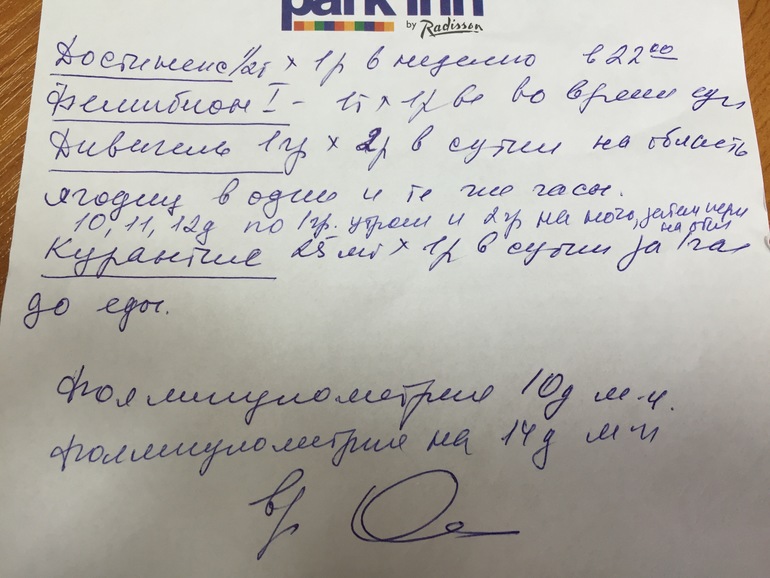 park inn
by Radisson
Достинекс 1/2т × 1р в неделю в 22⁰⁰
Фемибион I - 1т × 1р во время еды
Дивигель 1гр × 2р в сутки на область
ягодиц в одни и те же часы.
10, 11, 12д по 1гр. утром и 2гр на ночь, затем
Курантил 25 мг × 1р в сутки за 1час
до еды.
Фолликулометрия 10д м.ц.
Фолликулометрия на 14д м.ц
вр